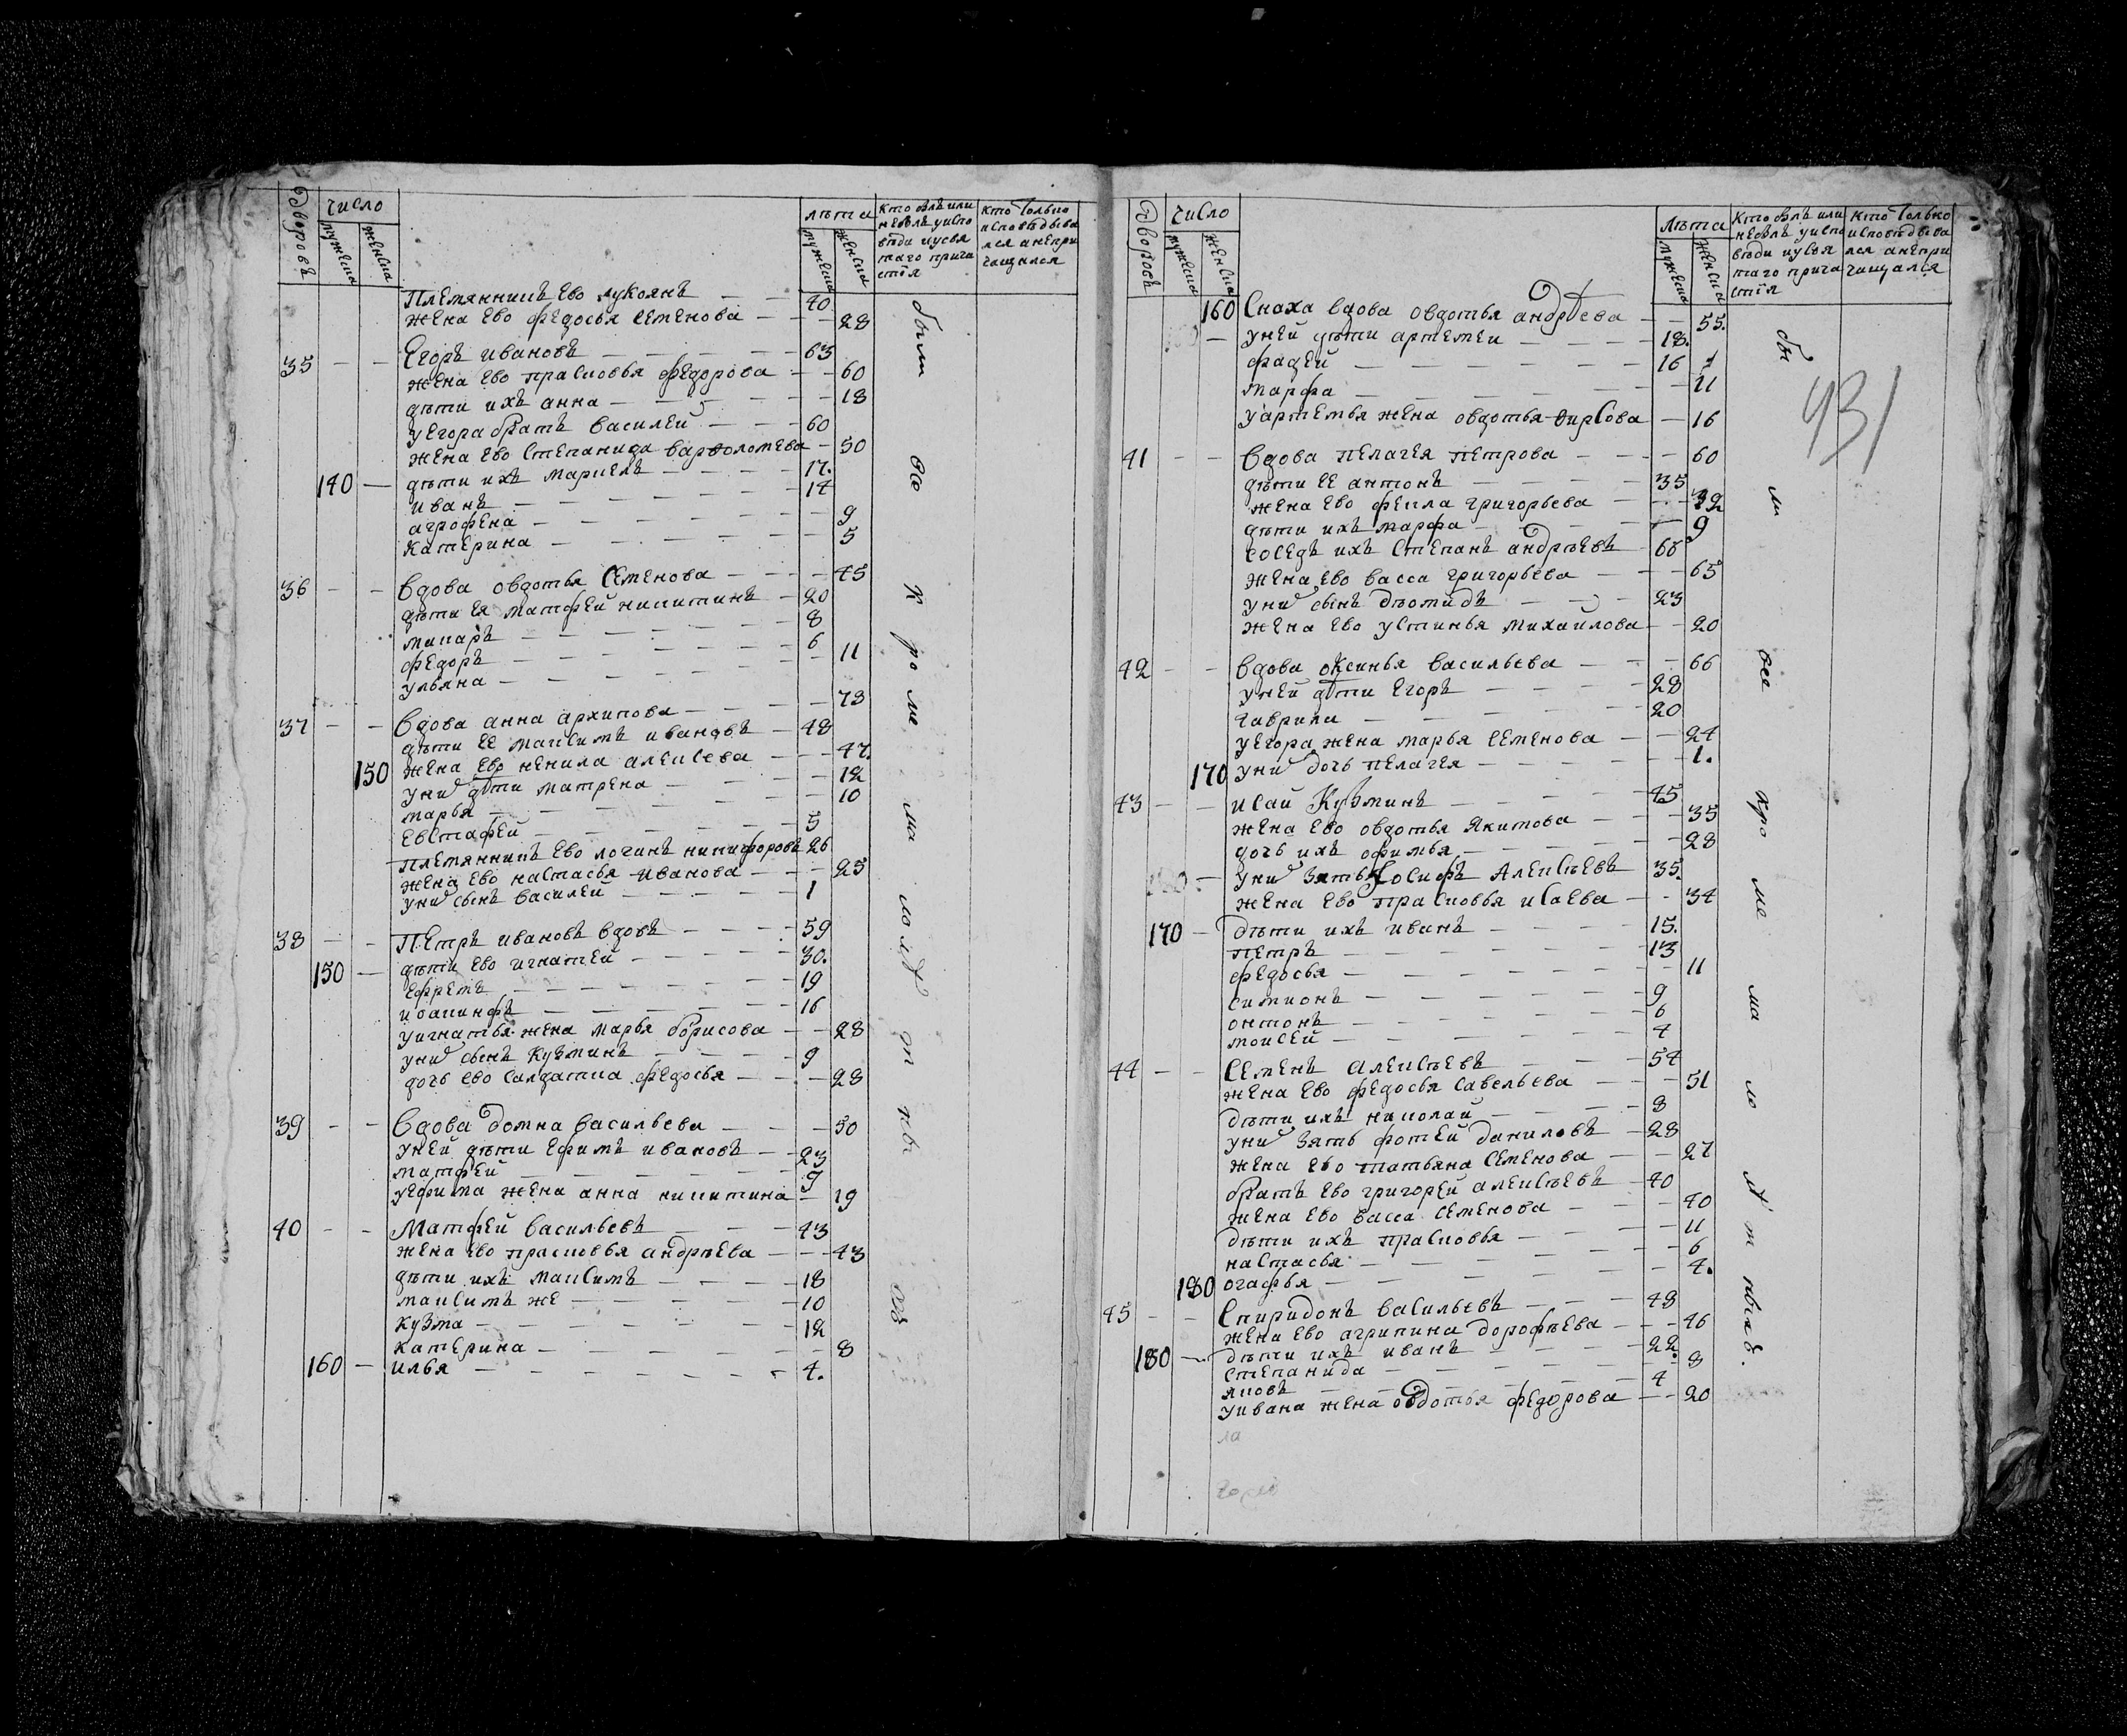 Дворовъ
число
мужеска
женска
лѣта
мужеска
женска
кто былъ или
небылъ уиспо
вѣди иусвя
таго прича
стїя
кто только
исповѣдыва
лся анепри
чащался
Племянникъ ево лукоянъ — — 40
жена ево федосья семенова — — 28
35 — — Егоръ ивановъ — — 63
жена ево прасковья федорова — — 60
дѣти ихъ анна — — 18
уегора братъ василей — — 60
жена ево степанида варѳоломѣева — 50
140 — дѣти ихъ маркелъ — — 17.
иванъ — — 14
агрофена — — 9
катерина — — 5
36 — — вдова овдотья семенова — — 45
дѣти ея матфей никитинъ — 20
макаръ — — 8
федоръ — — 6
ульяна — — 11
37 — — вдова анна архипова — — 73
дѣти ее максимъ ивановъ — 48
150 жена ево ненила алексеева — — 47.
уних дѣти матрена — — 12
марья — — 10
евстафей — — 5
племянникъ ево логинъ никифоровъ 26
жена ево настасья иванова — — 25
уних сынъ василей — — 1
38 — — Петръ ивановъ вдовъ — — 59
150 — дѣти ево игнатей — — 30.
ефремъ — — 19
иоакинфъ — — 16
уигнатья жена марья борисова — — 28
уних сынъ кузминъ — — 9
дочь ево салдатка федосья — — 28
39 — — вдова домна васильева — — 50
уней дѣти ефимъ ивановъ — — 23
матфей — — 9
уефима жена анна никитина — 19
40 — — Матфей васильевъ — — 43
жена ево прасковья андрѣева — — 43
дѣти ихъ максимъ — — 18
максимъ же — — 10
кузма — — 12
катерина — — 8
160 — илья — — 4.
были все кроме малолѣтнъ
Дворовъ
число
мужеска
женска
лѣта
мужеска
женска
кто былъ или
небылъ уиспо
вѣди иусвя
таго прича
стїя
кто только
исповѣдыва
лся анепри
чащался
431
160 Снаха вдова овдотья андрѣева — — 55.
уней дѣти артемеи — — 18.
фадей — — 16
марфа — — 11
уартемья жена овдотья фирсова — 16
41 — — вдова пелагея петрова — — 60
дѣти ее антонъ — — 35
жена ево фекла григорьева — —
дѣти ихъ марфа — — 9
соседъ ихъ степанъ андрѣевъ — 66
жена ево васса григорьева — — 65
уних сынъ дѣомидъ — — 23
жена ево устинья михайлова — — 20
42 — — вдова оксинья васильева — — 66
уней дѣти егоръ — — 28
гаврила — — 20
уегора жена марья семенова — — 24
170 уних дочь пелагея — — 1.
43 — — исай кузминъ — — 45
жена ево овдотья якимова — — 35
дочь ихъ офимья — — 28
уних зять иосифъ алексѣевъ 35.
жена ево прасковья исаева — — 34
170 — дѣти ихъ иванъ — — 15.
петръ — — 13
федосья — — 11
симионъ — — 9
онтонъ — — 6
моисей — — 4
44 — — Семенъ алексѣевъ — — 54
жена ево федосья савельева — — 51
дѣти ихъ николай — — 8
уних зять фотей даниловъ — 28
жена ево татьяна семенова — — 27
братъ ево григорей алексѣевъ — 40
жена ево васса семенова — — 40
дѣти ихъ прасковья — — 11
настасья — — 6
180 огафья — — 4.
45 — — Спиридонъ васильевъ — — 48
жена ево агрипина дорофѣева — — 46
180 — дѣти ихъ иванъ — — 22.
степанида — — 8
яковъ — — 4
уивана жена овдотья федорова — — 20
были все кроме малолѣтныхъ.